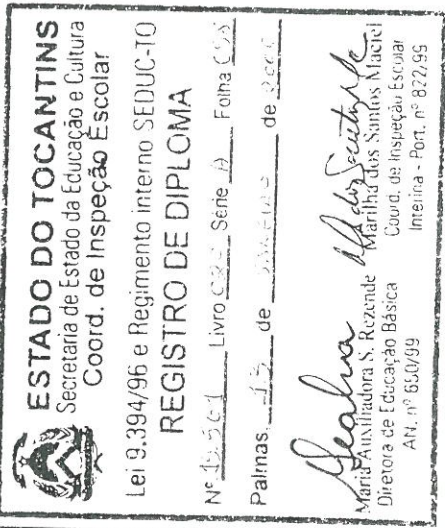 ESTADO DO TOCANTINS
Secretaria de Estado da Educação e Cultura
Coord. de Inspeção Escolar
Lei 9.394/96 e Regimento interno SEDUC-TO
REGISTRO DE DIPLOMA
Nº Livro Série A Folha
Palmas, de de
Maria Auxiliadora S. Rezende
Diretora de Educação Básica
AN. nº 650/99
Marilha dos Santos Maciel
Coord. de Inspeção Escolar
Interina - Port. nº 822/99